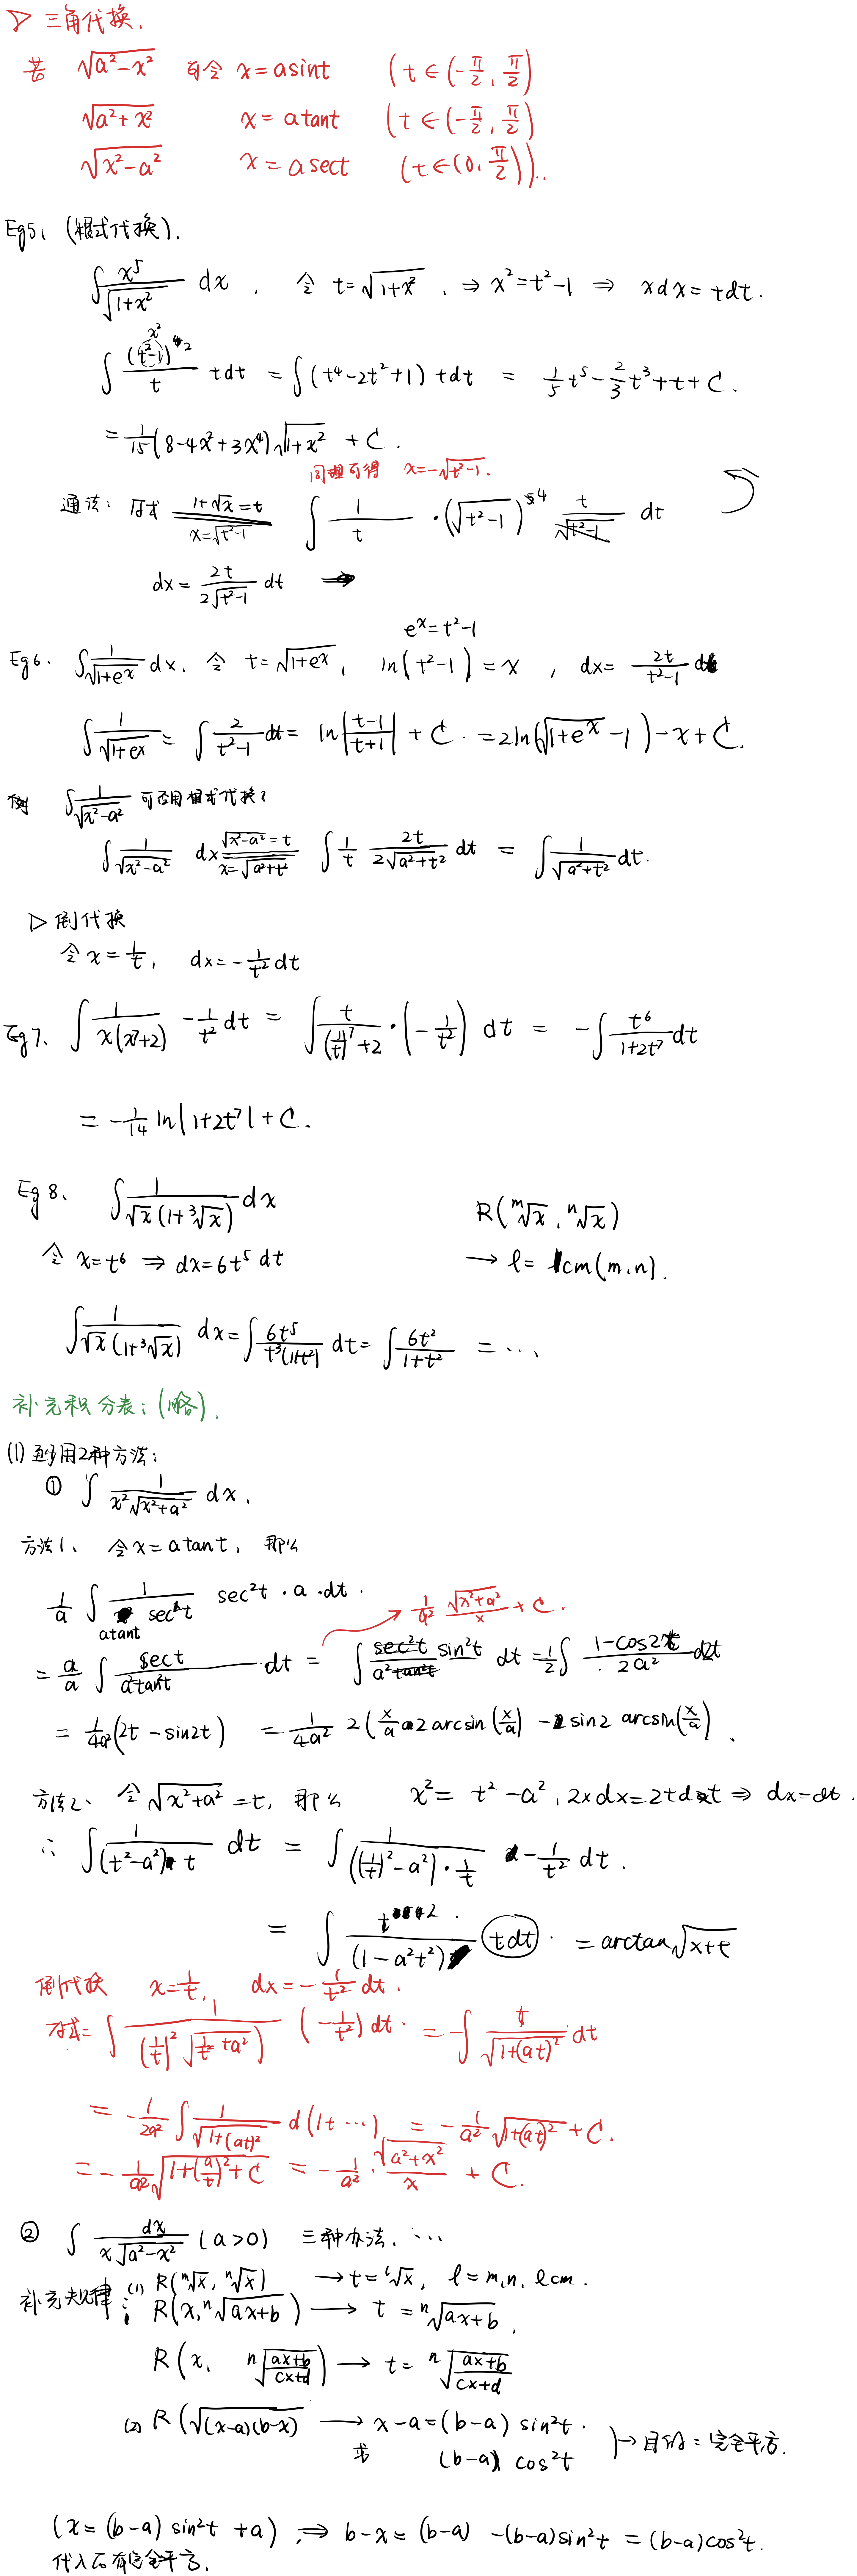 ▷ 三角代换.
若 √(a²-x²) 可令 x = a sint (t ∈ (-π/2, π/2)
√(a²+x²) x = a tant (t ∈ (-π/2, π/2)
√(x²-a²) x = a sect (t ∈ (0, π/2))..
Eg5. (根式代换).
∫ x⁵/√(1+x²) dx , 令 t = √(1+x²) , ⇒ x² = t²-1 ⇒ xdx = tdt.
x²
∫ (t²-1)²/t tdt = ∫(t⁴-2t²+1) tdt = 1/5 t⁵ - 2/3 t³ + t + C.
= 1/15 (8-4x²+3x⁴)√(1+x²) + C.
同理可得 x = -√(t²-1).
通法: 原式 1+√x = t x = √(t²-1) ∫ 1/t · (√(t²-1))⁴ t/√(t²-1) dt
dx = 2t/(2√(t²-1)) dt ⇒
e^x = t²-1
Eg6. ∫ 1/√(1+e^x) dx, 令 t = √(1+e^x), ln(t²-1) = x , dx = 2t/(t²-1) dt
∫ 1/√(1+e^x) = ∫ 2/(t²-1) dt = ln|(t-1)/(t+1)| + C. = 2ln(√(1+e^x) - 1) - x + C.
例 ∫ 1/√(x²-a²) 可否用根式代换?
∫ 1/√(x²-a²) dx √(x²-a²) = t x = √(a²+t²) ∫ 1/t 2t/(2√(a²+t²)) dt = ∫ 1/√(a²+t²) dt.
▷ 倒代换
令 x = 1/t, dx = -1/t² dt
Eg7. ∫ 1/(x(x⁷+2)) -1/t² dt = ∫ t/((1/t)⁷+2) · (-1/t²) dt = -∫ t⁶/(1+2t⁷) dt
= -1/14 ln|1+2t⁷| + C.
Eg8. ∫ 1/(√x(1+³√x)) dx R(ᵐ√x, ⁿ√x)
令 x = t⁶ ⇒ dx = 6t⁵ dt → l = lcm(m,n).
∫ 1/(√x(1+³√x)) dx = ∫ 6t⁵/(t³(1+t²)) dt = ∫ 6t²/(1+t²) = ...
补充积分表: (略).
(1) 用2种方法:
① ∫ 1/(x²√(x²+a²)) dx.
方法1. 令 x = a tant, 那么
1/a ∫ 1/(atant sect) sec²t · a · dt.
→ 1/a² √(x²+a²)/x + C.
= a/a ∫ sect/(a²tan²t) dt = ∫ sec²t sin²t/(a²tan²t) dt = 1/2 ∫ (1-cos2t)/(2a²) d2t
= 1/4a² (2t - sin2t) = 1/4a² 2(x/a 2arcsin(x/a) - sin2 arcsin(x/a).
方法2. 令 √(x²+a²) = t, 那么 x² = t²-a², 2xdx = 2tdt ⇒ dx = dt.
∴ ∫ 1/((t²-a²) t) dt = ∫ 1/(((1/t)²-a²)·1/t) -1/t² dt.
= ∫ t²/(1-a²t²) tdt. = arctan√(x+t)
倒代换 x = 1/t, dx = -1/t² dt.
原式 = ∫ 1/((1/t)²√(1/t²+a²)) (-1/t²) dt. = -∫ t/√(1+(at)²) dt
= -1/2a² ∫ 1/√(1+(at)²) d(1+...) = -1/a² √(1+(at)²) + C.
= -1/a² √(1+(a/t)²) + C = -1/a² · √(a²+x²)/x + C.
② ∫ dx/(x√(a²-x²)) (a>0) 三种办法. ...
补充规律: (1) R(ᵐ√x, ⁿ√x) → t = ˡ√x, l = m,n, lcm.
R(x, ⁿ√(ax+b)) → t = ⁿ√(ax+b),
R(x, ⁿ√((ax+b)/(cx+d))) → t = ⁿ√((ax+b)/(cx+d))
(2) R(√((x-a)(b-x)) → x-a = (b-a) sin²t.
或 (b-a) cos²t ) → 目的 = 完全平方.
(x = (b-a) sin²t + a) , ⇒ b-x = (b-a) - (b-a)sin²t = (b-a)cos²t.
代入后有完全平方.